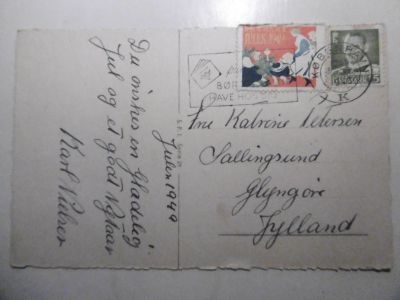 Du ønskes en Glædelig
Jul og et godt Nytaar
Karl Nielsen
Julen 1949
JULEN 1949
BØR
HAVE
KØBENHAVN
K
Fru Katrine Petersen
Sallingsund
Glyngøre
Jylland